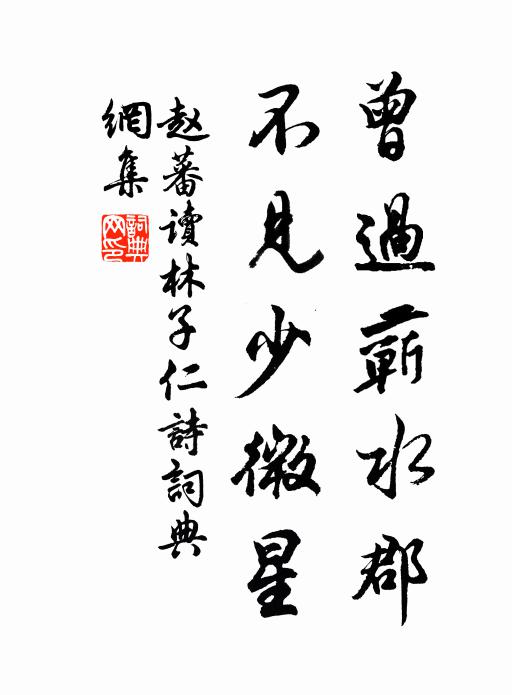 曾過蘄水郡
不見少微星
赵蕃讀林子仁詩詞典
網集
詞典网印